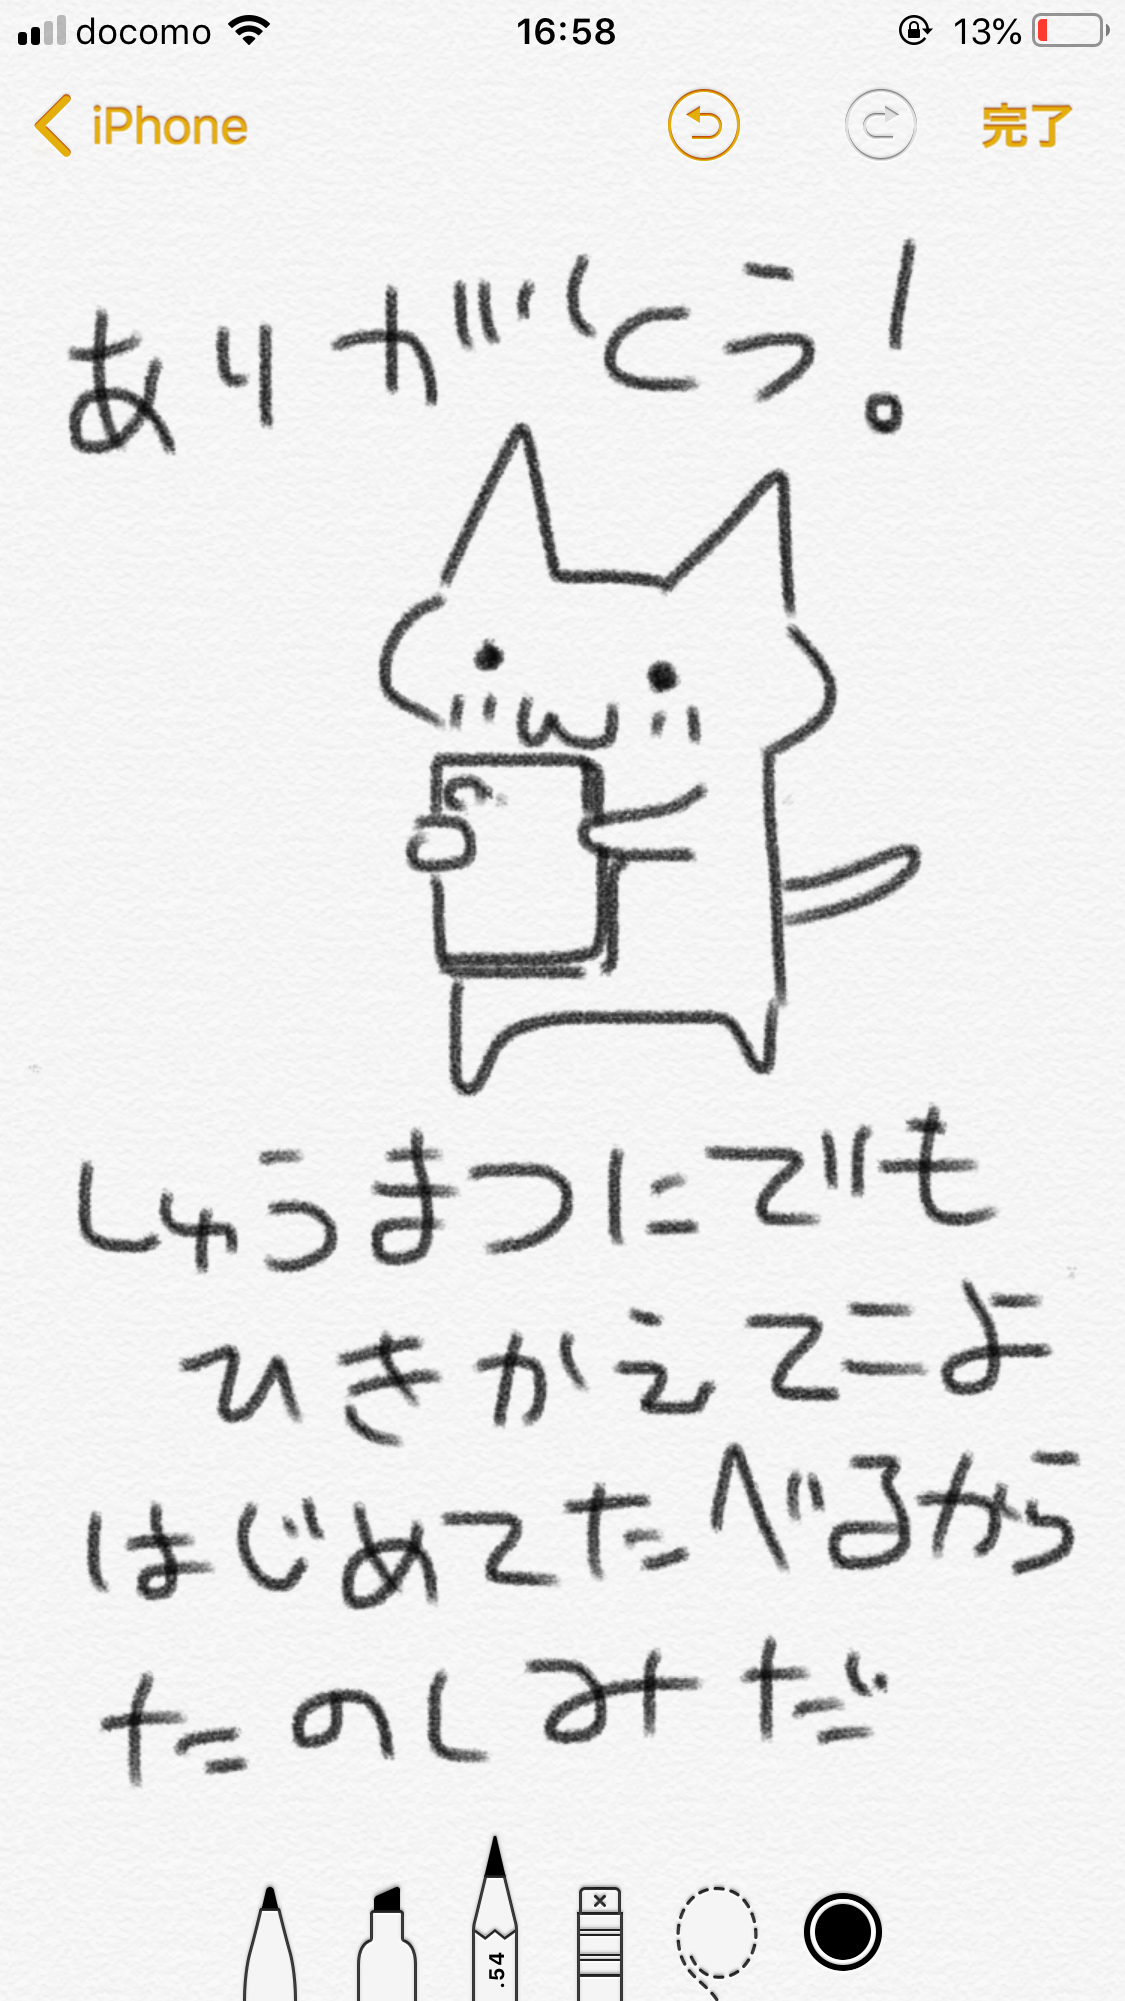 docomo 16:58 13%
iPhone 完了
ありがとう!
しゅうまつにでも
ひきかえてこよ
はじめてたべるから
たのしみだ
.54